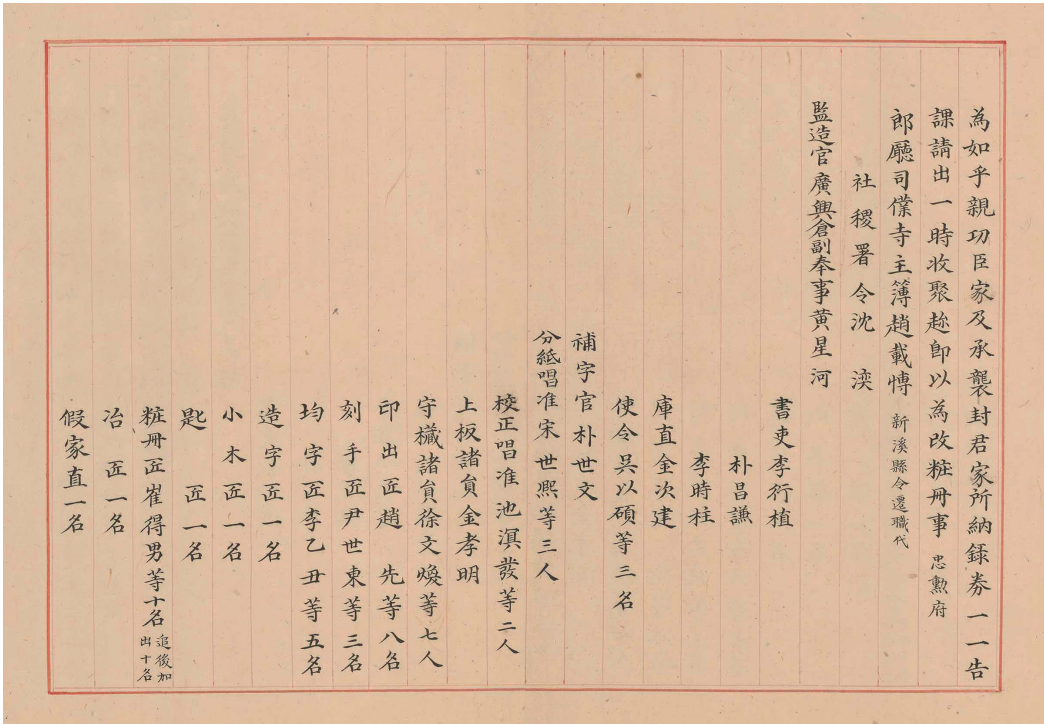 為如乎親功臣家及承襲封君家所納録券一一告
課請出一時收聚趂卽以為改粧冊事 忠勲府
郎廳司僕寺主簿趙載愽 新溪縣令遷職代
社稷署令沈 湙
監造官廣興倉副奉事黃星河
書吏李衍植
朴昌謙
李時柱
庫直金次建
使令吳以碩等三名
補字官朴世文
分紙唱准宋世熙等三人
校正唱准池漢發等二人
上板諸貟金孝明
守欌諸貟徐文煥等七人
印出匠趙 先等八名
刻手匠尹世東等三名
均字匠李乙丑等五名
造字匠一名
小木匠一名
匙 匠一名
粧冊匠崔得男等十名 追後加出十名
冶 匠一名
假家直一名